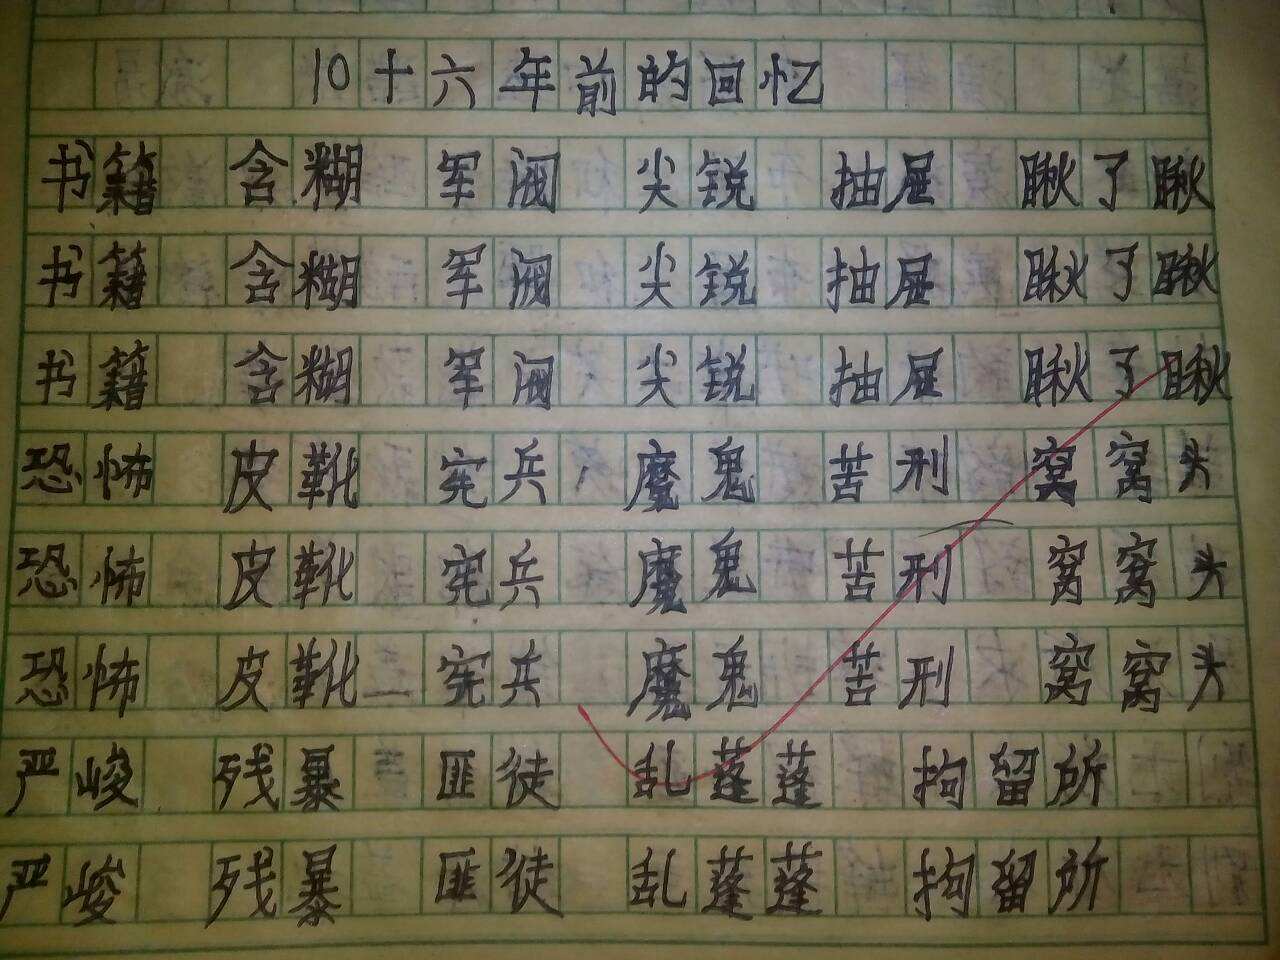 10十六年前的回忆
书籍 含糊 军阀 尖锐 抽屉 瞅了瞅
书籍 含糊 军阀 尖锐 抽屉 瞅了瞅
书籍 含糊 军阀 尖锐 抽屉 瞅了瞅
恐怖 皮靴 宪兵 魔鬼 苦刑 窝窝头
恐怖 皮靴 宪兵 魔鬼 苦刑 窝窝头
恐怖 皮靴 宪兵 魔鬼 苦刑 窝窝头
严峻 残暴 匪徒 乱蓬蓬 拘留所
严峻 残暴 匪徒 乱蓬蓬 拘留所